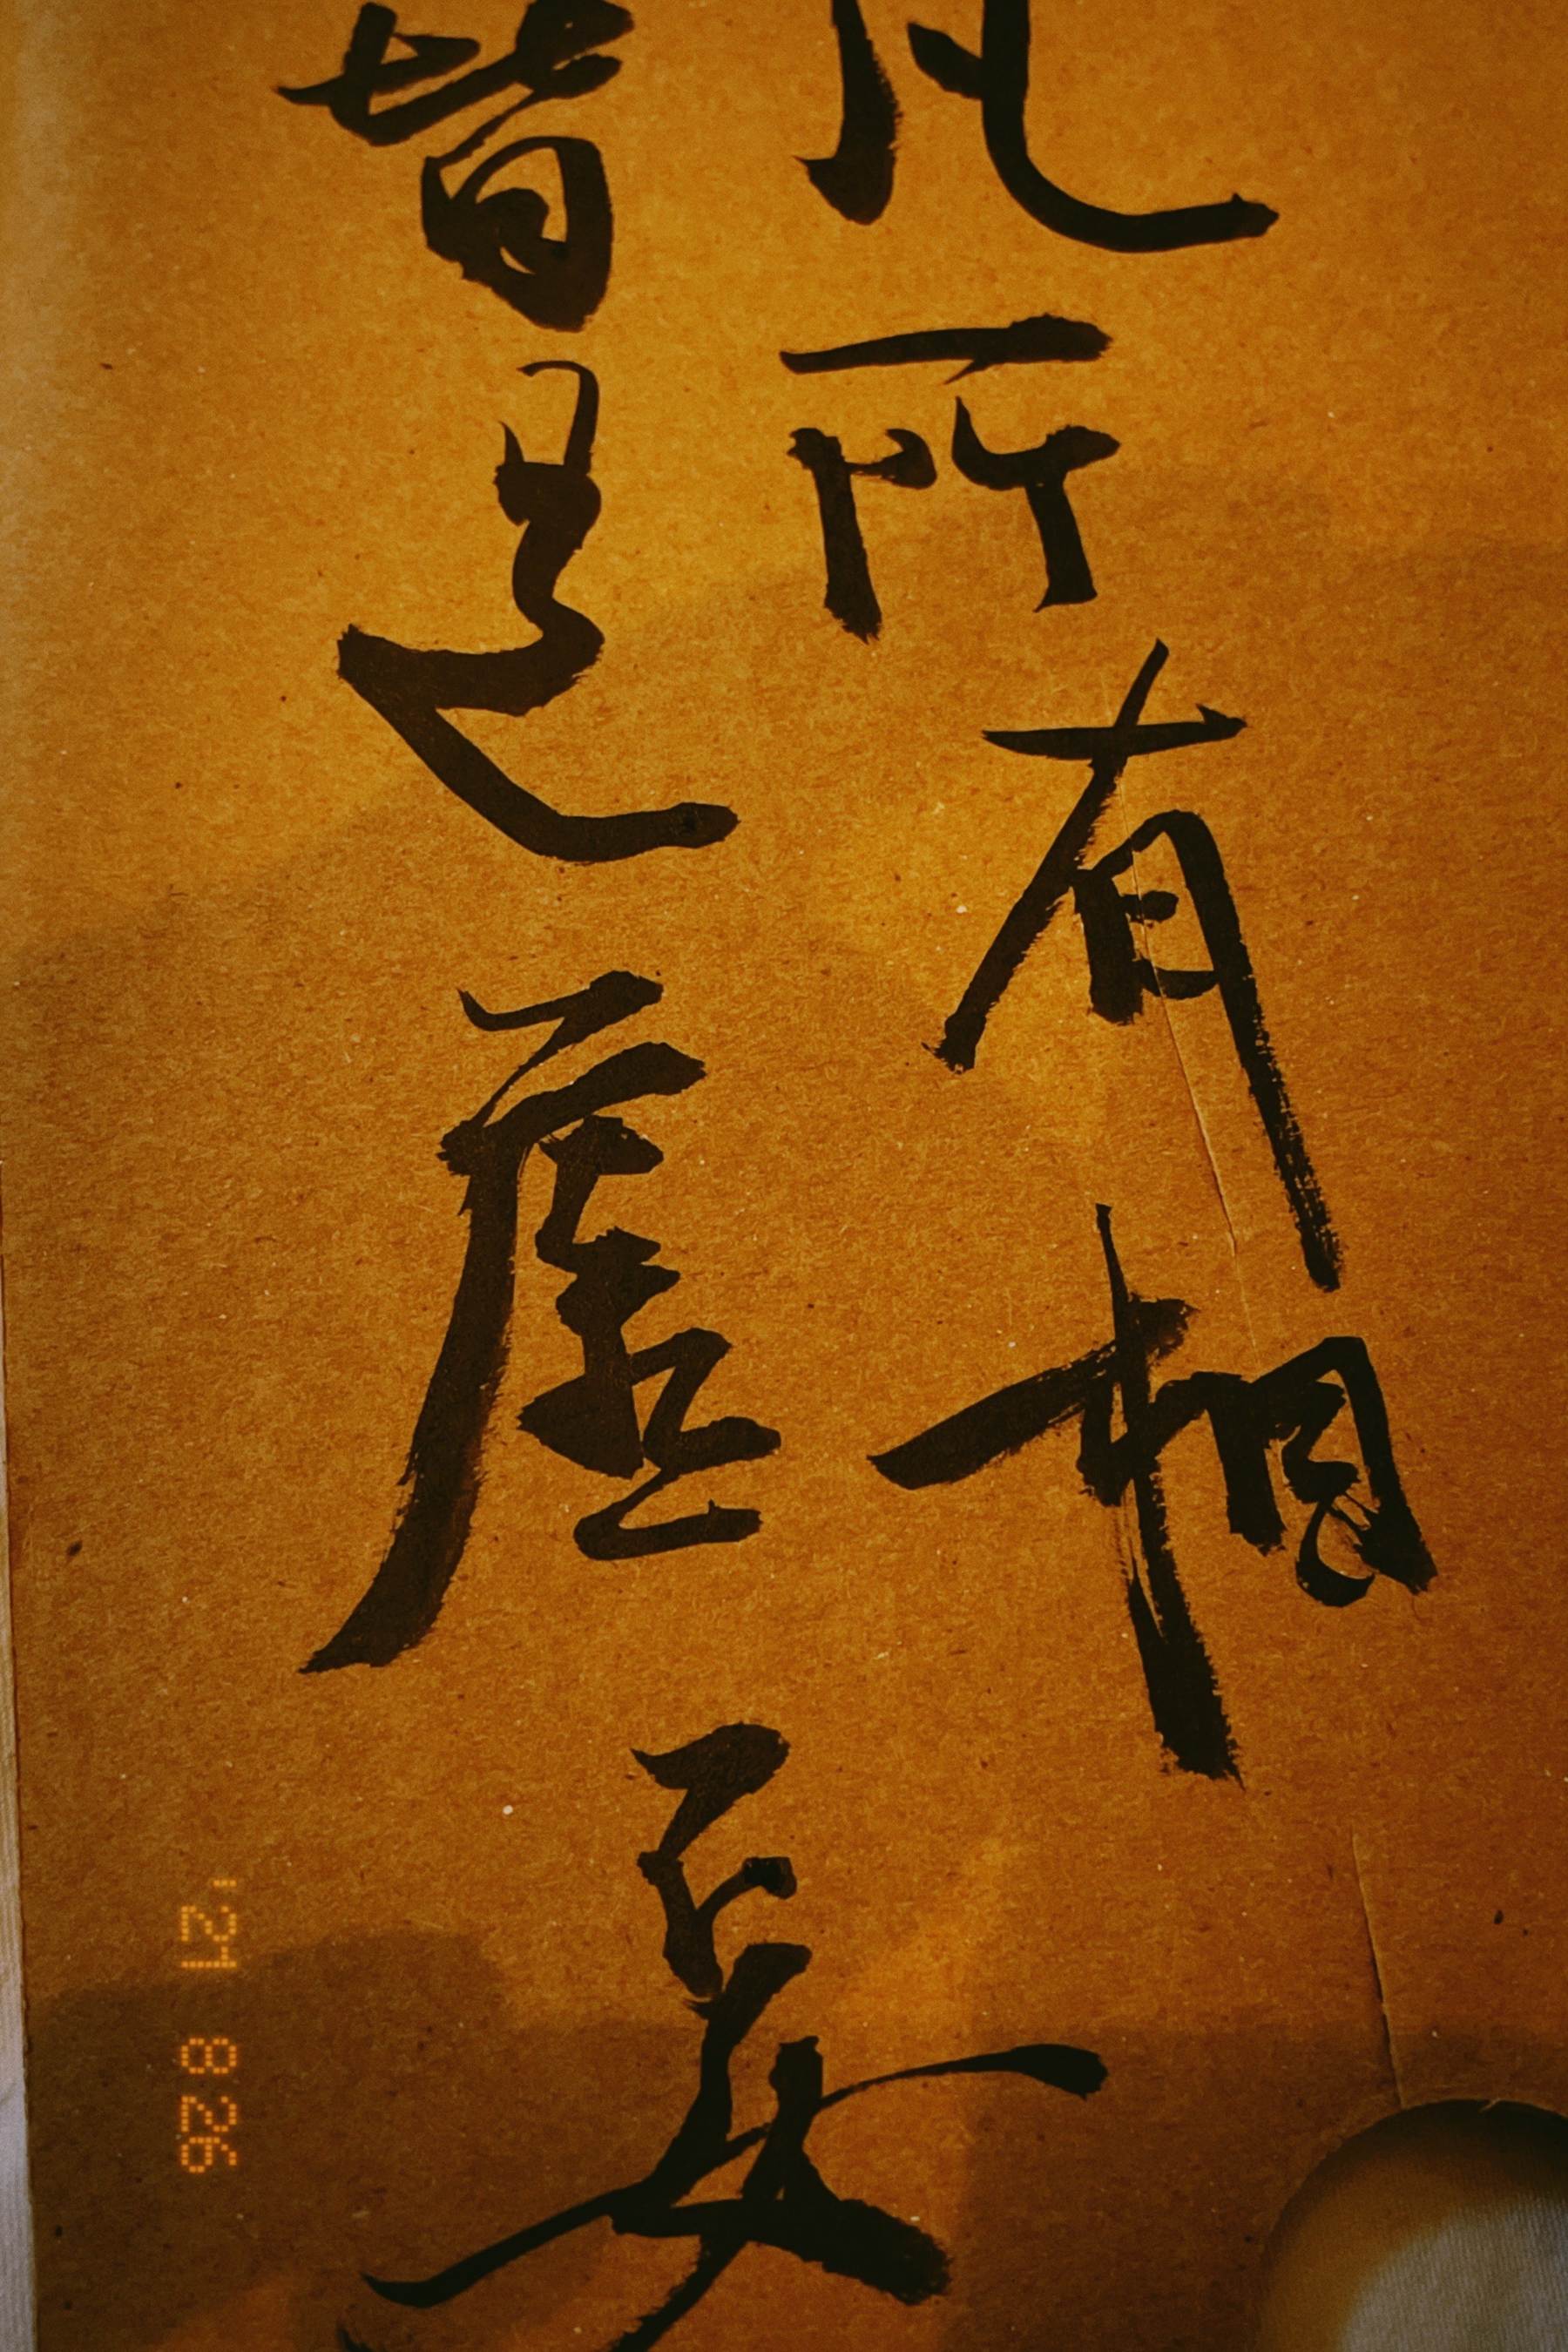 凡所有相
皆是虚妄
'21 8 26